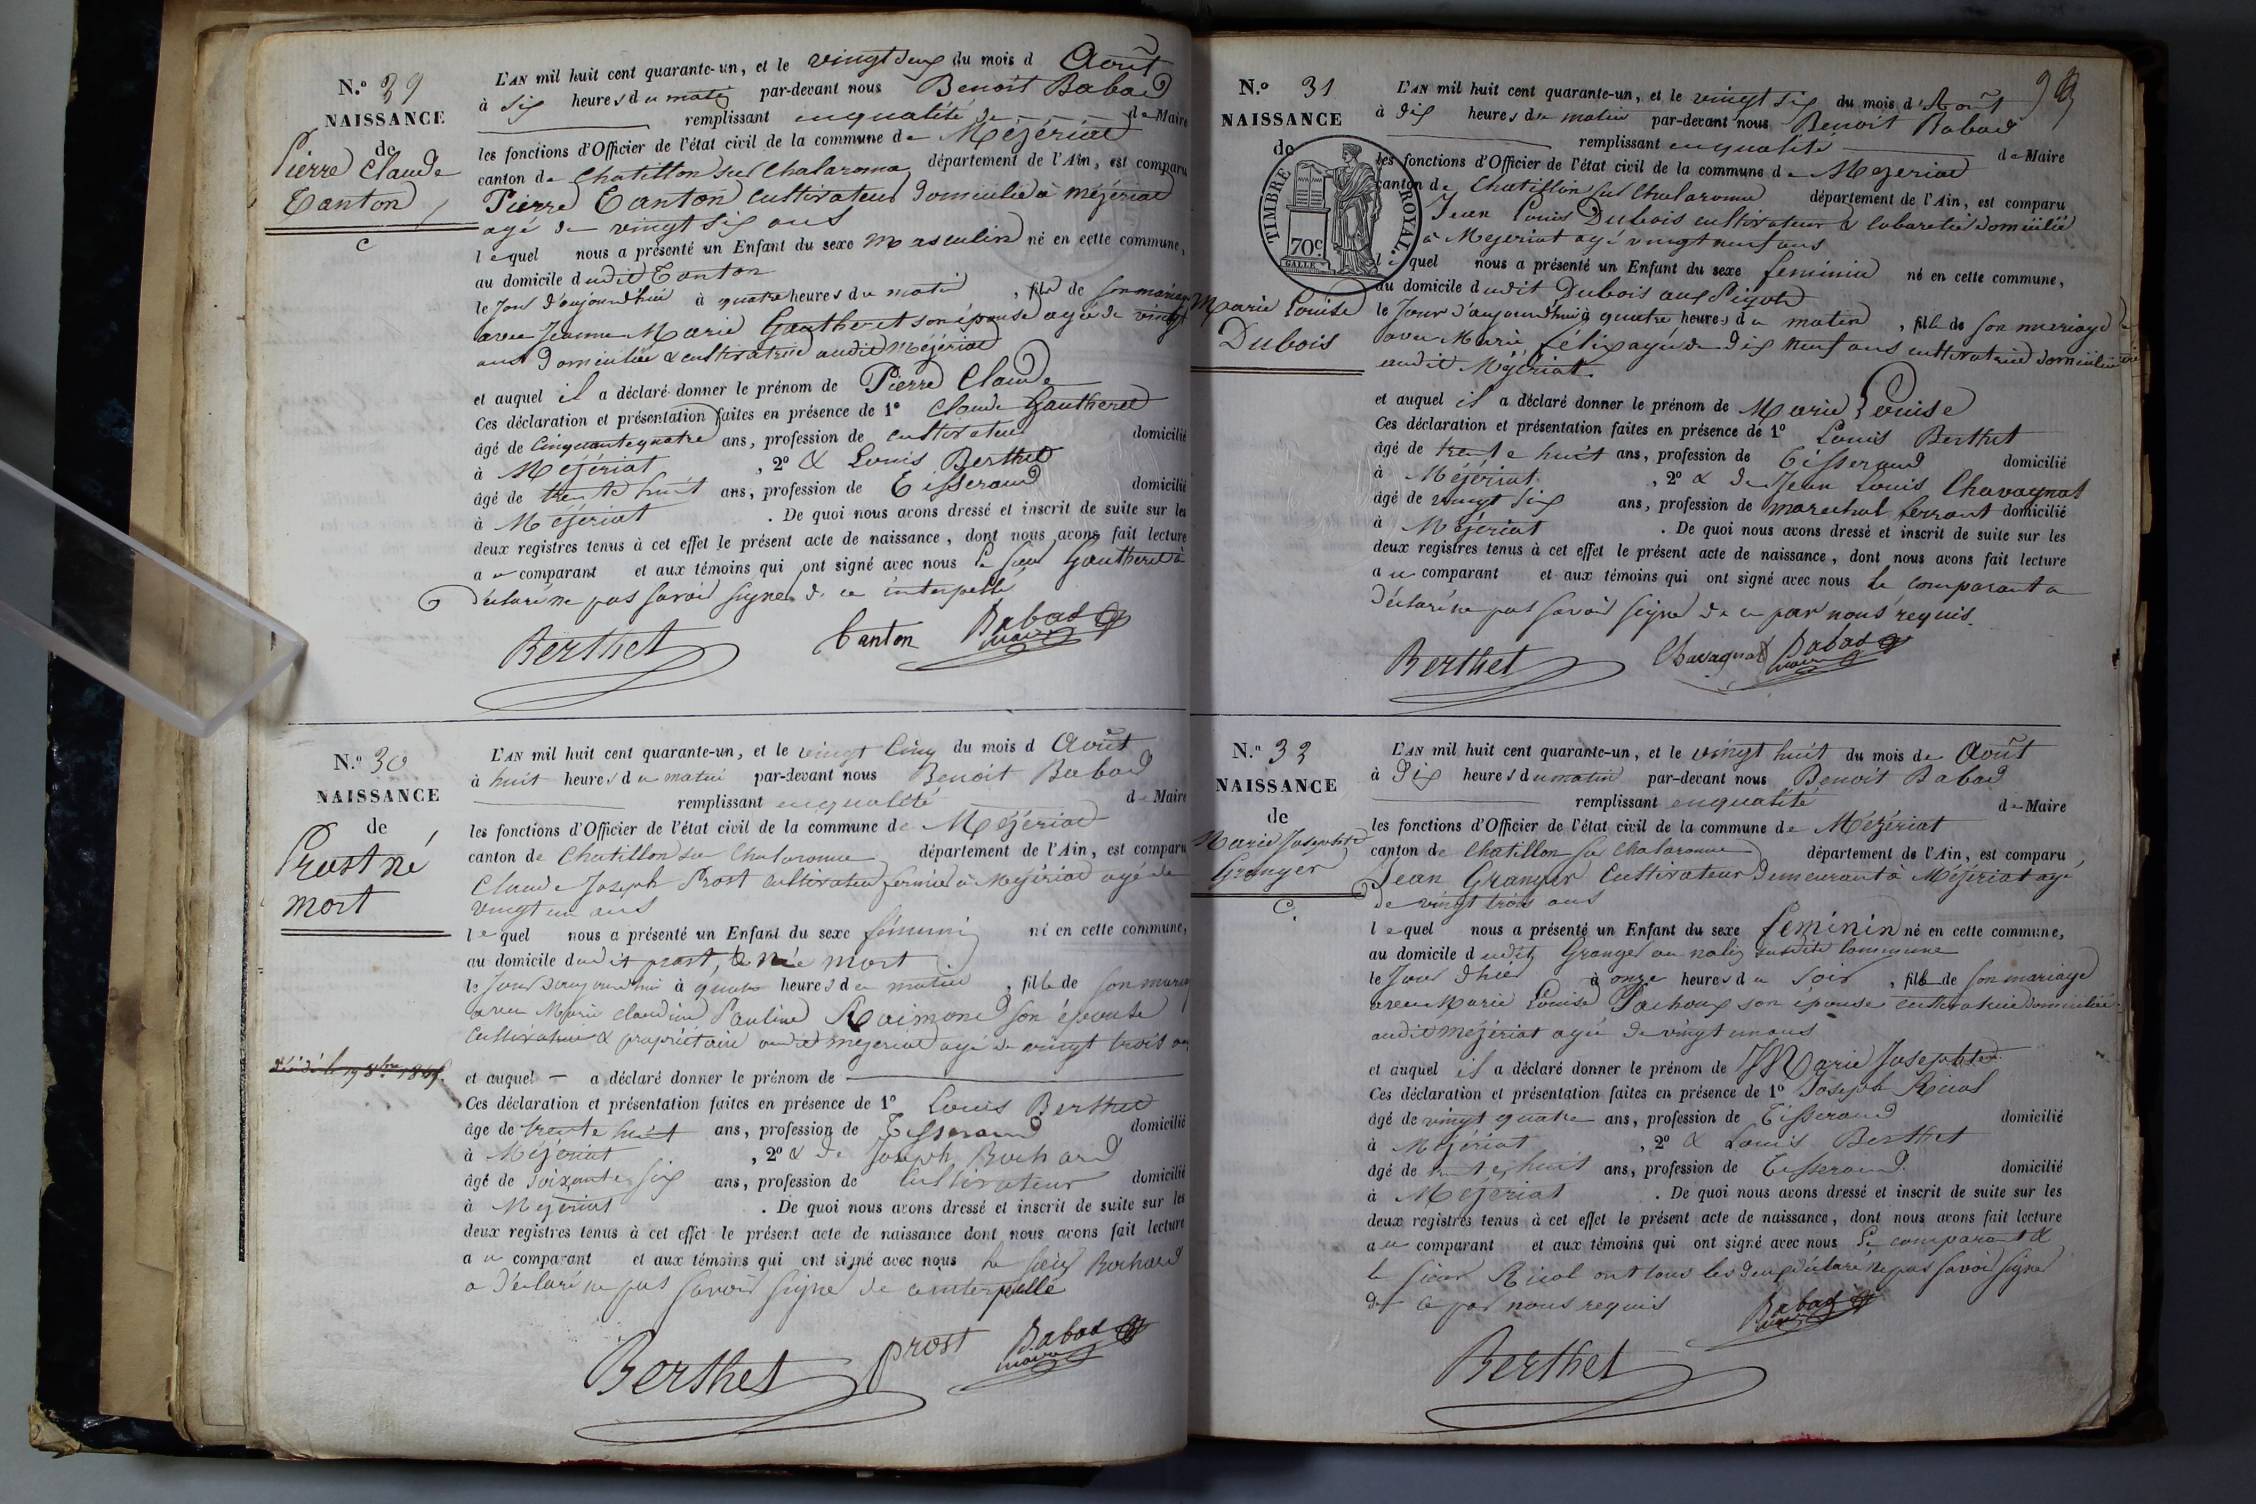 N.º 29
NAISSANCE
de
Pierre Claude
Tanton
L'AN mil huit cent quarante-un, et le vingt deux du mois d Août
à six heures du matin par-devant nous Benoit Babad
remplissant en qualité de de Maire
les fonctions d'Officier de l'état civil de la commune de Mézériat
canton de Chatillon sur Chalaronne département de l'Ain, est comparu
Pierre Tanton cultivateur domicilié à mézériat
agé de vingt six ans
lequel nous a présenté un Enfant du sexe masculin né en cette commune,
au domicile dudit Tanton
le jour d'aujourd'hui à quatre heures du matin, fils de son mariage
avec Jeanne Marie Gautheret son épouse agée de vingt
ans domiciliée & cultivatrice audit Mézériat
et auquel il a déclaré donner le prénom de Pierre Claude
Ces déclaration et présentation faites en présence de 1º Claude Gautheret
âgé de Cinquante quatre ans, profession de cultivateur domicilié
à Mézériat, 2º & Louis Berthet
âgé de trente huit ans, profession de Tisserand domicilié
à Mézériat. De quoi nous avons dressé et inscrit de suite sur les
deux registres tenus à cet effet le présent acte de naissance, dont nous avons fait lecture
au comparant et aux témoins qui ont signé avec nous le sieur Gautheret à
déclaré ne pas savoir signer de ce interpellé
Berthet Tanton Babad maire
N.º 30
NAISSANCE
de
Prost né
mort
L'AN mil huit cent quarante-un, et le vingt cinq du mois d Août
à huit heures du matin par-devant nous Benoit Babad
remplissant en qualité de Maire
les fonctions d'Officier de l'état civil de la commune de Mézériat
canton de Chatillon sur Chalaronne département de l'Ain, est comparu
Claude Joseph Prost cultivateur fermier à Mézériat agé de
vingt un ans
lequel nous a présenté un Enfant du sexe féminin né en cette commune,
au domicile dudit prost, née mort
le jour d'aujourd'hui à quatre heures du matin, fille de son mariage
avec Marie Claudine Pauline Raimond son épouse
cultivatrice & propriétaire audit mézériat agé de vingt trois ans
et auquel — a déclaré donner le prénom de
Ces déclaration et présentation faites en présence de 1º Louis Berthet
âge de trente huit ans, profession de Tisserand domicilié
à Mézériat, 2º & de Joseph Bochard
âgé de soixante six ans, profession de Cultivateur domicilié
à Mézériat. De quoi nous avons dressé et inscrit de suite sur les
deux registres tenus à cet effet le présent acte de naissance dont nous avons fait lecture
au comparant et aux témoins qui ont signé avec nous le sieur Bochard
a déclaré ne pas savoir signer de ce interpellé
Berthet prost Babad maire
N.º 31
NAISSANCE
de
TIMBRE ROYAL.
70c.
Marie Louise
Dubois
L'AN mil huit cent quarante-un, et le vingt six du mois d'Août
à dix heures du matin par-devant nous Benoit Babad
remplissant en qualité de Maire
les fonctions d'Officier de l'état civil de la commune de Mézériat
canton de Chatillon sur Chalaronne département de l'Ain, est comparu
Jean Louis Dubois cultivateur & cabaretier domicilié
à Mézériat agé vingt neuf ans
lequel nous a présenté un Enfant du sexe feminin né en cette commune,
au domicile dudit Dubois aux
le Jour d'aujourd'hui à quatre heures du matin, fille de son mariage
avec Marie Félix agée de dix neuf ans cultivatrice domiciliée
audit Mézériat.
et auquel il a déclaré donner le prénom de Marie Louise
Ces déclaration et présentation faites en présence de 1º Louis Berthet
âgé de trente huit ans, profession de Tisserand domicilié
à Mézériat, 2º & de Jean Louis Chavagnat
âgé de vingt six ans, profession de marechal ferrant domicilié
à Mézériat. De quoi nous avons dressé et inscrit de suite sur les
deux registres tenus à cet effet le présent acte de naissance, dont nous avons fait lecture
au comparant et aux témoins qui ont signé avec nous le comparant a
déclaré ne pas savoir signer de ce par nous requis.
Berthet Chavagnat Babad maire
N.º 32
NAISSANCE
de
Marie Josephte
Granger
L'AN mil huit cent quarante-un, et le vingt huit du mois de Août
à dix heures du matin par-devant nous Benoit Babad
remplissant en qualité de Maire
les fonctions d'Officier de l'état civil de la commune de Mézériat
canton de Chatillon sur Chalaronne département de l'Ain, est comparu
Jean Granger Cultivateur demeurant à Mézériat agé
de vingt trois ans
lequel nous a présenté un Enfant du sexe feminin né en cette commune,
au domicile dudit Granger au susdite commune
le Jour d'hier à onze heures du soir, fille de son mariage
avec Marie Louise Pachoux son épouse cultivatrice domiciliée
audit mézériat agée de vingt un ans
et auquel il a déclaré donner le prénom de Marie Josephte
Ces déclaration et présentation faites en présence de 1º Joseph Ricol
âgé de vingt quatre ans, profession de Tisserand domicilié
à Mézériat, 2º & Louis Berthet
âgé de trente huit ans, profession de Tisserand domicilié
à Mézériat. De quoi nous avons dressé et inscrit de suite sur les
deux registres tenus à cet effet le présent acte de naissance, dont nous avons fait lecture
au comparant et aux témoins qui ont signé avec nous Le comparant &
le sieur Ricol ont tous les deux déclaré ne pas savoir signer
de ce par nous requis
Babad maire
Berthet